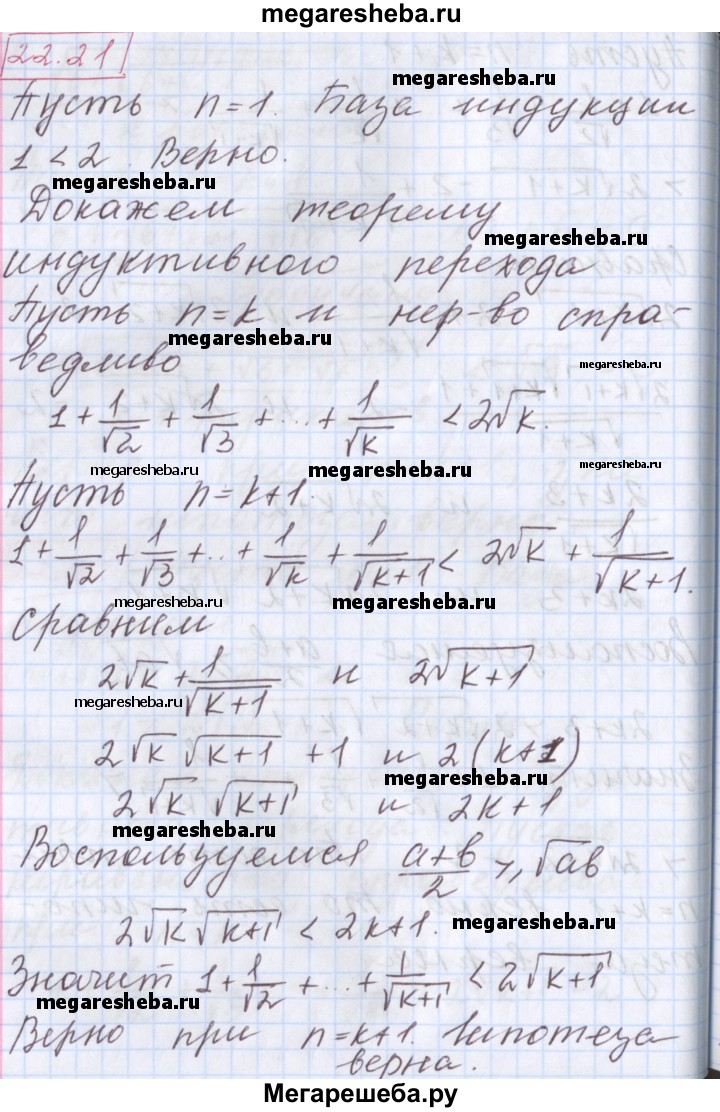 megaresheba.ru
22.21
Пусть n=1. База индукции
megaresheba.ru
1<2. Верно.
megaresheba.ru
Докажем теорему
megaresheba.ru
индуктивного перехода
Пусть n=k и нер-во спра-
megaresheba.ru
ведливо
megaresheba.ru
1+1/√2+1/√3+...+1/√k <2√k.
megaresheba.ru megaresheba.ru
Пусть n=k+1.
megaresheba.ru
1+1/√2+1/√3+..+1/√k+1/√(k+1)< 2√k+1/√(k+1).
megaresheba.ru megaresheba.ru
Сравним
2√k+1/√(k+1) и 2√(k+1)
megaresheba.ru
2√k √(k+1) +1 и 2(k+1)
megaresheba.ru
2√k √(k+1) и 2k+1
megaresheba.ru
Воспользуемся (a+b)/2 ⩾ √ab
2√k√(k+1) < 2k+1.
megaresheba.ru
Значит 1+1/√2+...+1/√(k+1) <2√(k+1)
megaresheba.ru
Верно при n=k+1. Гипотеза
верна.
Мегарешеба.ру